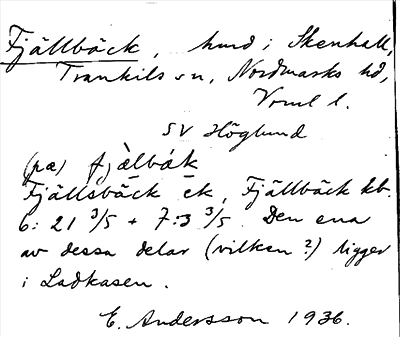 Fjällbäck, hmd i Skenhall,
Trankils sn, Nordmarks hd,
Vrml l.
SV Höglund
(pæ) fjä̀lbǻk
Fjällsbäck ek, Fjällbäck kb.
6: 21 3/5 + 7:3 3/5. Den ena
av dessa delar (vilken?) ligger
i Ladkasen.
E. Andersson 1936.